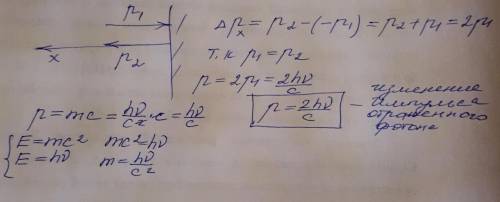 p₁
x
p₂
Δpₓ = p₂ - (-p₁) = p₂ + p₁ = 2p₁
т.к p₁ = p₂
p = 2p₁ = 2hν/c
p = mc = hν/c² · c = hν/c
p = 2hν/c — изменение
импульса
отраженного
фотона
{ E = mc²   mc² = hν
E = hν   m = hν/c²